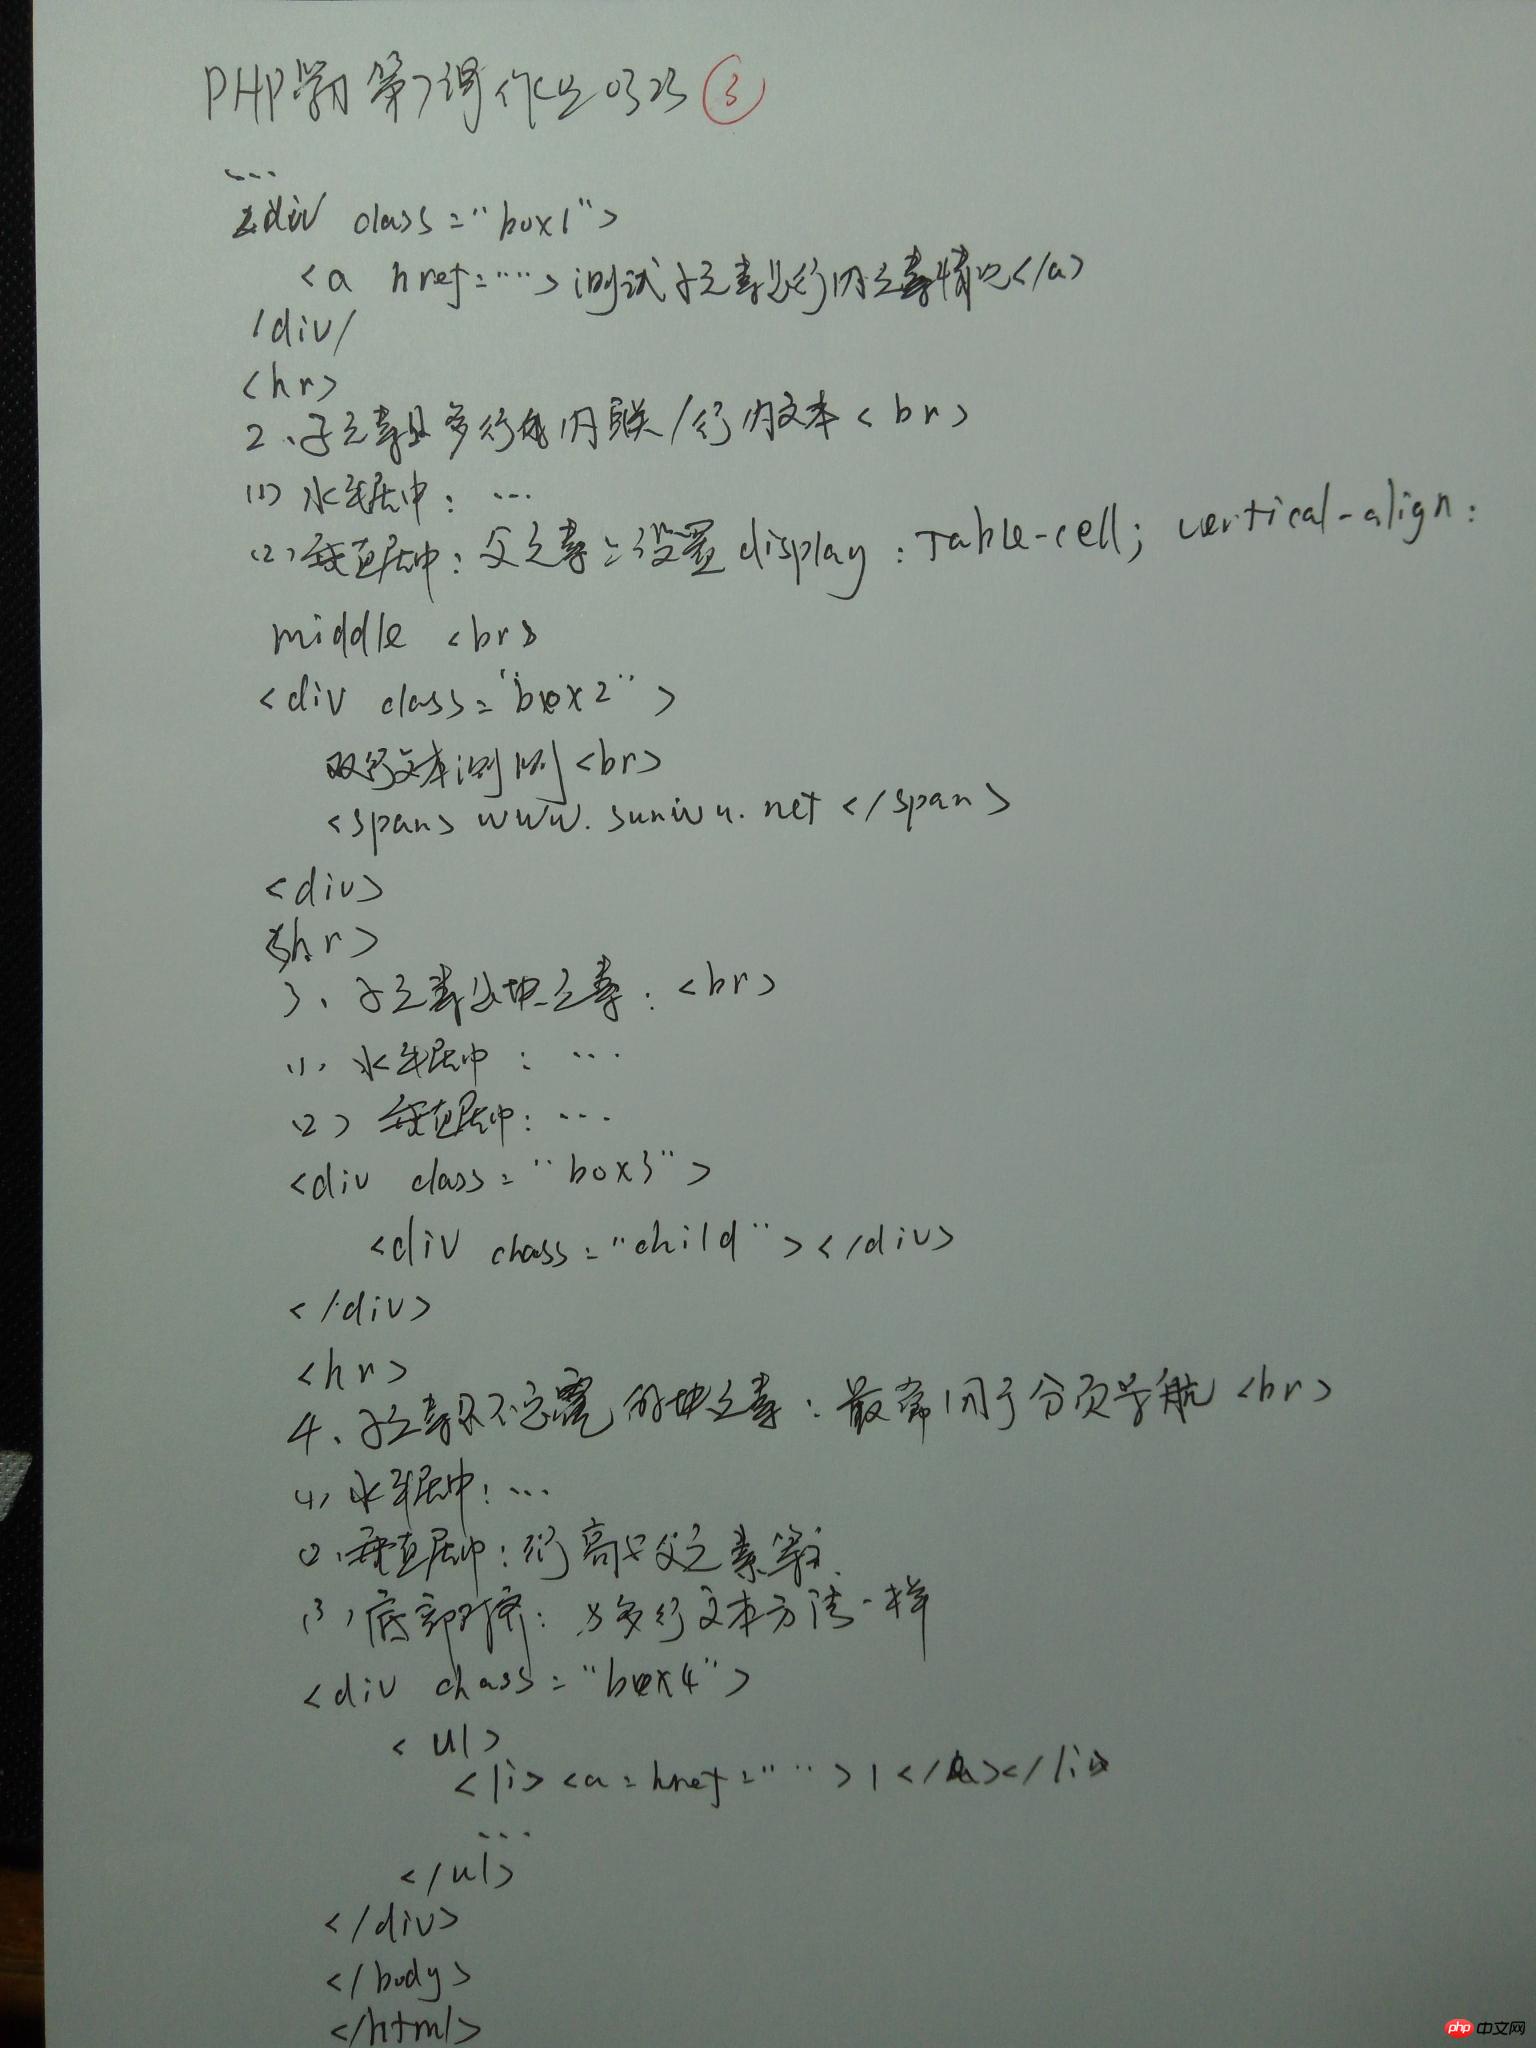 PHP学习 第7课 作业 0323 ③
...
<div class="box1">
<a href="..."> 测试子元素是行内元素情况</a>
/div/
<hr>
2、子元素是多行的内联/行内文本<br>
(1) 水平居中: ...
(2) 垂直居中: 父元素: 设置 display: Table-cell; vertical-align:
middle <br>
<div class="box2">
双行文本测试<br>
<span> www.sunwu.net </span>
<div>
<hr>
3、子元素是块元素: <br>
(1) 水平居中: ...
(2) 垂直居中: ...
<div class="box3">
<div class="child"></div>
</div>
<hr>
4、子元素是不定宽的块元素: 最常用于分页导航<br>
(1) 水平居中: ...
(2) 垂直居中: 行高与父元素等高
(3) 底部对齐: 与多行文本方法一样
<div class="box4">
<ul>
<li><a = href="..."> 1 </a></li>
...
</ul>
</div>
</body>
</html>
php 中文网